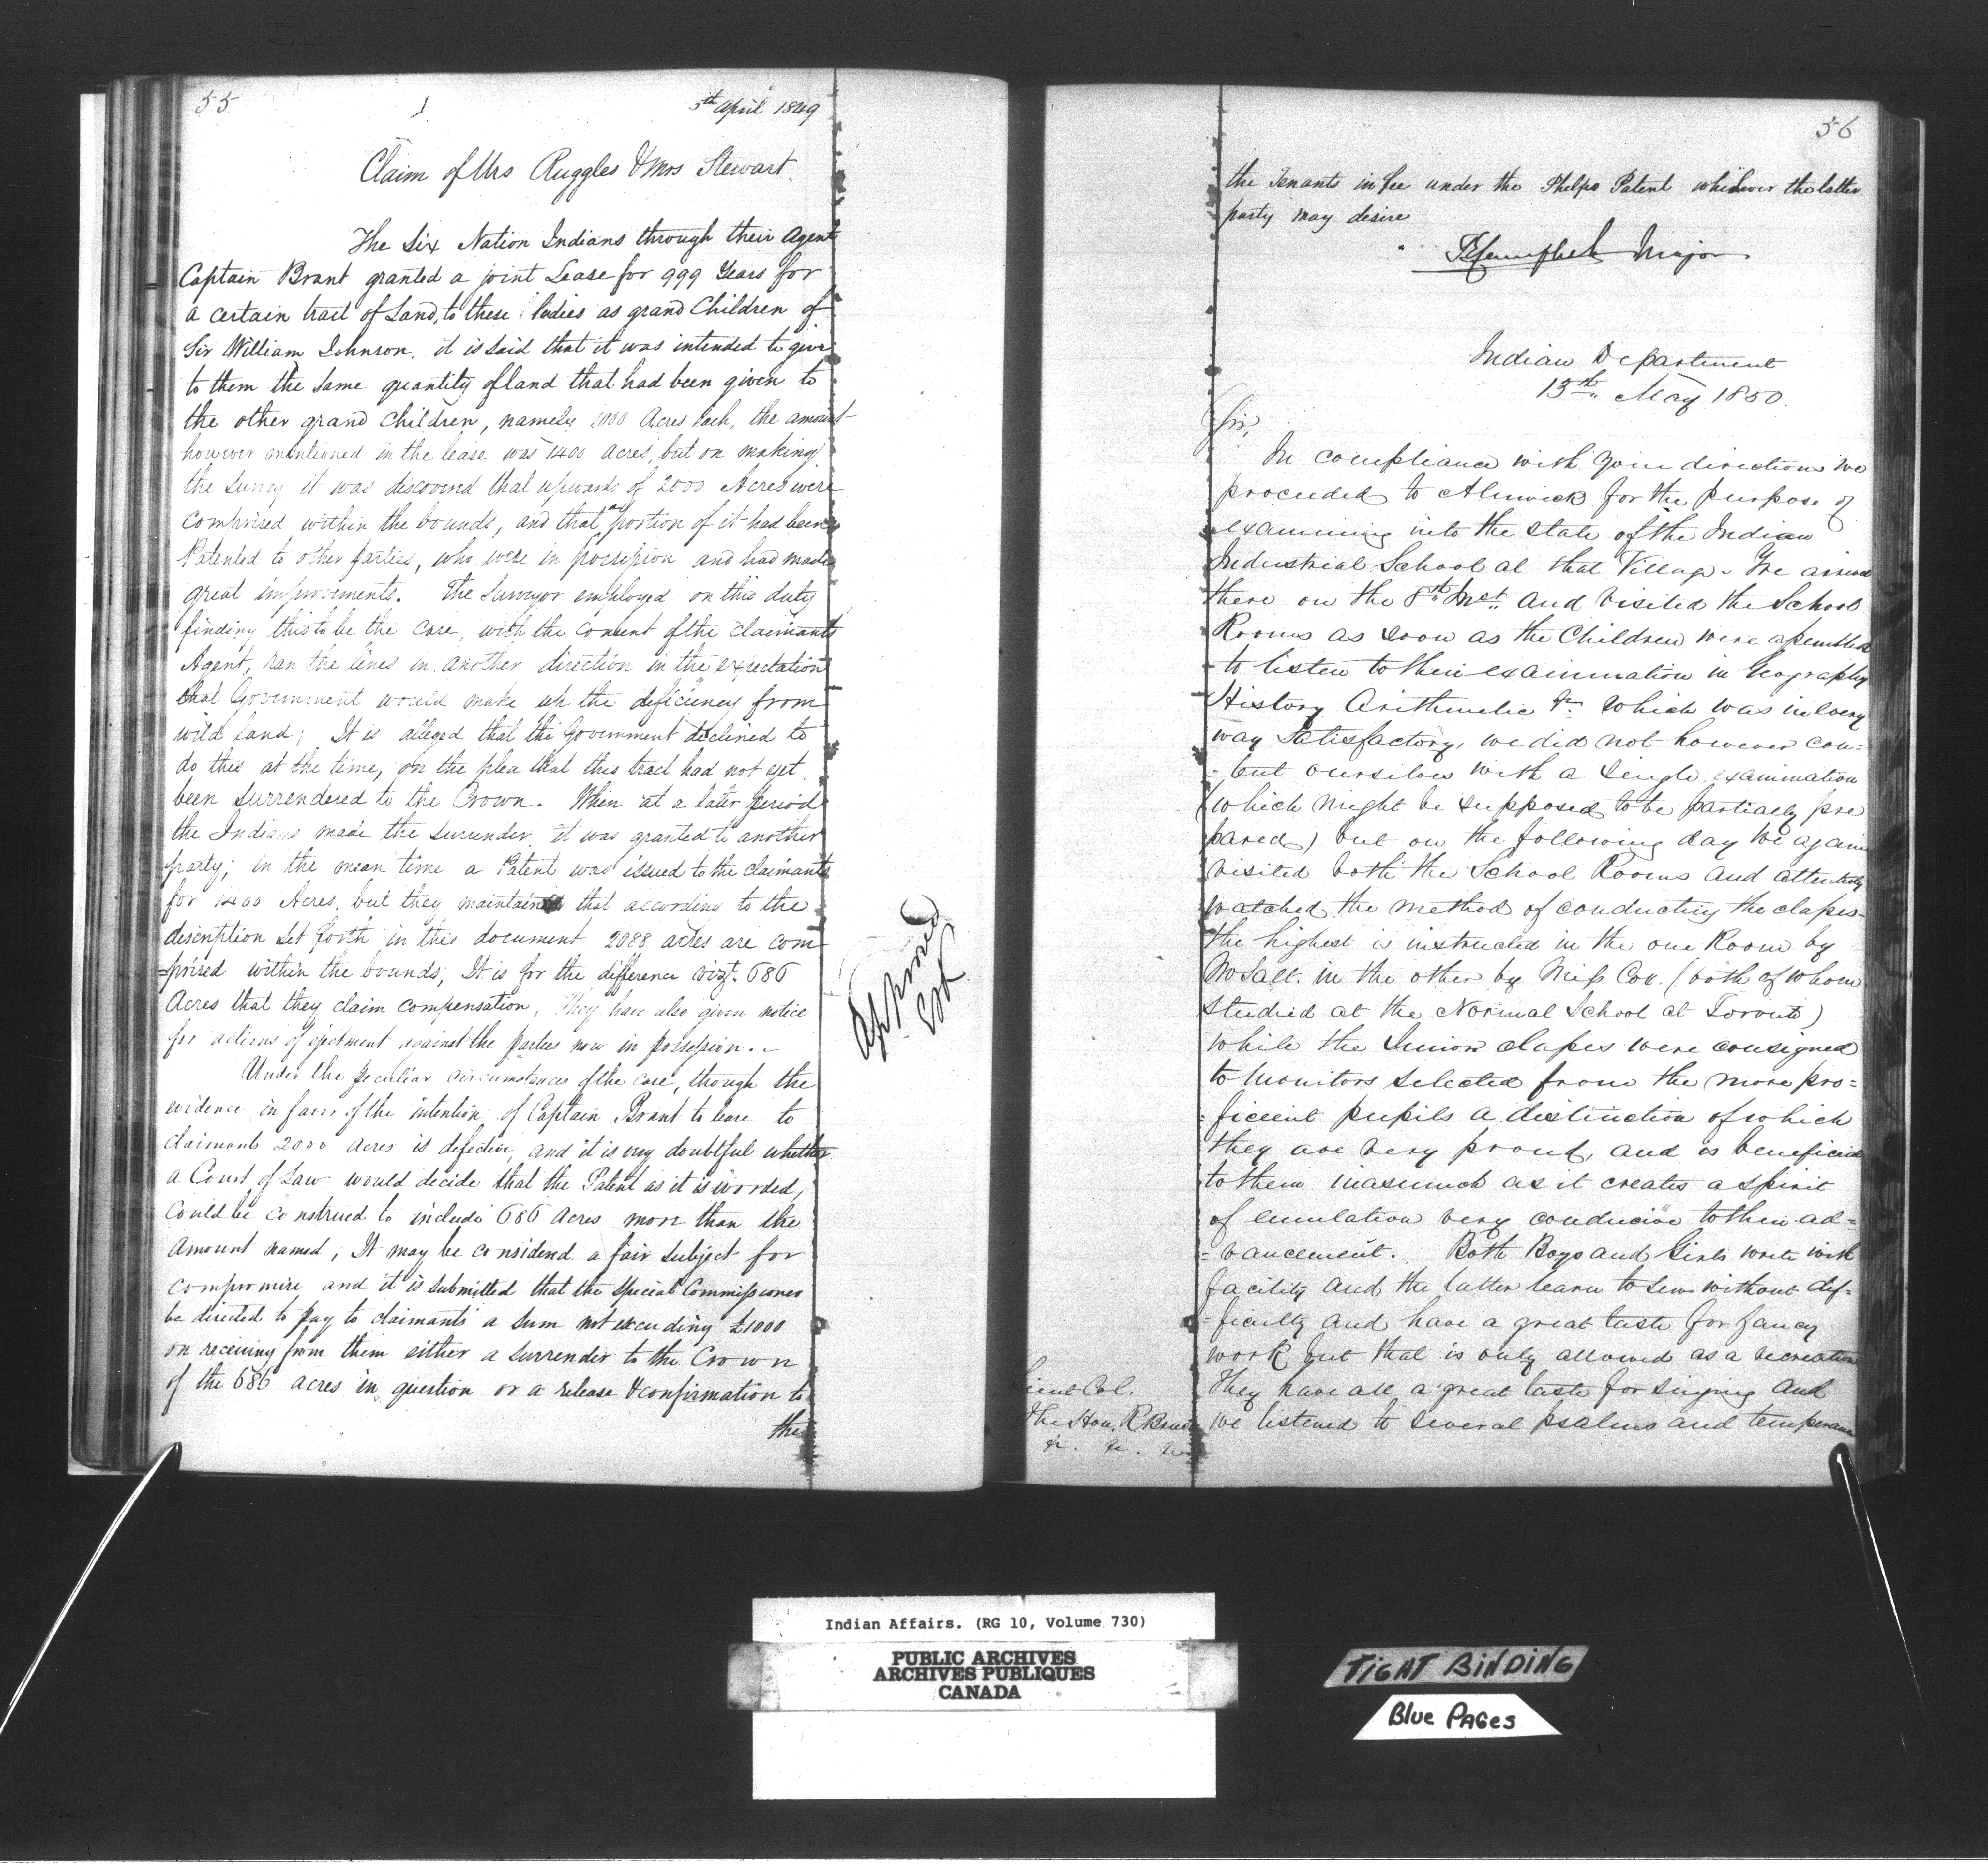 55
5th April 1849
Claim of Mrs Ruggles & Mrs Stewart.
The Six Nation Indians through their Agent
Captain Brant granted a joint Lease for 999 Years for
a certain tract of Land, to these ladies as grand Children of
Sir William Johnson. it is said that it was intended to give
to them the same quantity of land that had been given to
the other grand children, namely 1000 Acres each, the amount
however mentioned in the lease was 1400 acres, but on making
the survey it was discovered that upwards of 2000 Acres were
comprised within the bounds, and that a portion of it had been
Patented to other parties, who were in possession and had made
great improvements. The Surveyor employed on this duty
finding this to be the case, with the consent of the claimants
Agent, ran the lines in another direction in the expectation
that Government would make up the deficiency from
wild land; It is alleged that the Government declined to
do this at the time, on the plea that this tract had not yet
been surrendered to the Crown. When at a later period
the Indians made the surrender, it was granted to another
party; in the mean time a Patent was issued to the claimants
for 1400 Acres, but they maintained that according to the
discription set forth in this document 2088 acres are com-
-prised within the bounds, It is for the difference vizt. 686
Acres that they claim compensation, They have also given notice
for actions of ejectment against the parties now in possession. -
Under the peculiar circumstances of the case, though the
evidence in favor of the intention of Captain Brant to lease to
claimants 2000 acres is defective, and it is very doubtful whether
a Court of Law would decide that the Patent as it is worded,
could be construed to include 686 Acres more than the
Amount named, It may be considered a fair subject for
compromise and it is submitted that the special Commissioner
be directed to pay to claimants a sum not exceeding £1000
on receiving from them either a surrender to the Crown
of the 686 acres in question or a release & confirmation to
the
Approved
56
the Tenants in fee under the Phelps Patent whichever the latter
party may desire
TECampbell Major
Indian Department
13th May 1850.
Sir,
In compliance with your directions we
proceeded to Alnwick for the purpose of
examining into the state of the Indian
Industrial School at that Village. We arrived
there on the 8th Inst. and visited the School
Rooms as soon as the Children were assembled
to listen to their examination in Geography
History Arithmetic &c which was in every
way satisfactory, we did not however con=
=tent ourselves with a single examination
(which might be supposed to be partially pre
pared) but on the following day we again
visited both the School Rooms and attentively
watched the method of conducting the classes-
the highest is instructed in the one Room by
Mr Salt. in the other by Miss Cox. (both of whom
studied at the Normal School at Toronto)
while the Junior classes were consigned
to Monitors selected from the more pro=
=ficient pupils a distinction of which
they are very proud, and is beneficial
to them inasmuch as it creates a spirit
of emulation very conducive to their ad=
=vancement. Both Boys and Girls write with
facility and the latter learn to sew without dif=
=ficulty and have a great taste for fancy
work but that is only allowed as a recreation
They have all a great taste for singing and
we listened to several psalms and temperance
Lieut Col.
The Hon. R Bruce
&c. &c. &c.
Indian Affairs. (RG 10, Volume 730)
PUBLIC ARCHIVES
ARCHIVES PUBLIQUES
CANADA
TIGHT BINDING
Blue PAGes